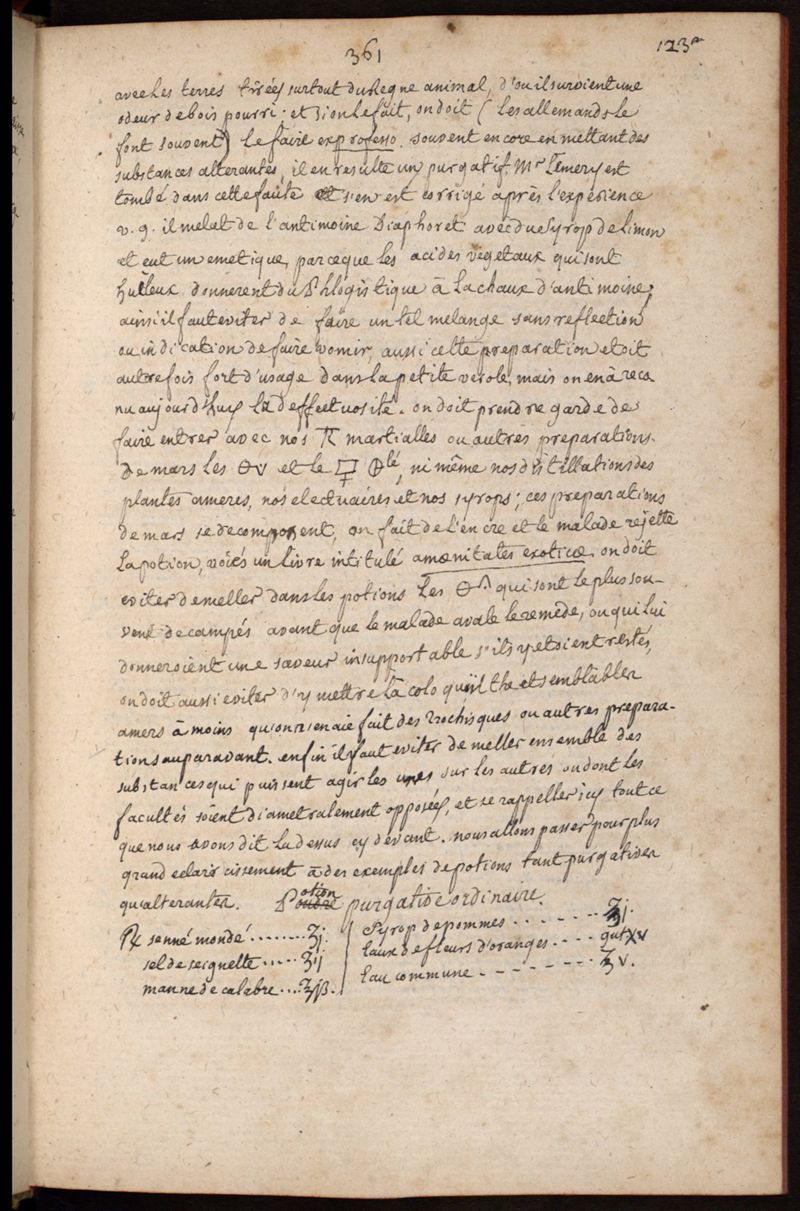 361
123ᵃ
avec les terres tirées surtout du Regne animal, d'ou il survient une
odeur de bois pourri; et si on le fait, on doit (les allemands le
font souvent) le faire exprofesso. souvent encore en mettant des
substances alterantes, il en resulte un purgatif. Mr Lemery est
tombé dans cette faute et s'en est corrigé après l'experience
v. g. il melat de l'antimoine Diaphoret. avec du Syrop de limon
et eut un emetique, parceque les acides vegetaux qui sont
huileux donnerent du Phlogistique à la chaux d'antimoine;
ainsi il faut eviter de faire un tel melange sans reflection
ou indication de faire vomir, aussi cette preparation etoit
autrefois fort d'usage dans la petite verole, mais on en à reco
nu aujourd'huy la deffectuosité. on doit prendre garde de
faire entrer avec nos martialles ou autres preparations.
de mars les et le , ni même nos distillations des
plantes ameres, nos electuaires et nos syrops; ces preparations
de mars se decomposent, on fait de l'encre et le malade rejette
la potion, voiés un livre intitulé amænitates exoticæ. on doit
eviter de meller dans les potions les qui sont le plus sou-
vent decampés avant que le malade avale le remede, ou qui lui
donneroient une saveur insupportable s'ils y etoient restés,
on doit aussi eviter d'y mettre la coloquinthe et semblables
amers à moins qu'on n'en aie fait des trochisques ou autres prepara-
tions auparavant. enfin il faut eviter de meller ensemble des
substances qui puissent agir les unes sur les autres ou dont les
facultés soient diametralement opposées, et se rappeller icy tout ce
que nous avons dit la dessus cy devant. nous allons passer pour plus
grand eclaircissement à des exemples de potions tant purgatives
qu'alterantes. Potion purgative ordinaire.
℞ senné mondé ........ ʒij.
sel de seignette ..... ʒij
manne de calabre .... ℥jß.
Syrop de pommes ....... ℥j.
Eaux de fleurs d'oranges .... gut xv
Eau commune - - - - - - - ℥v.